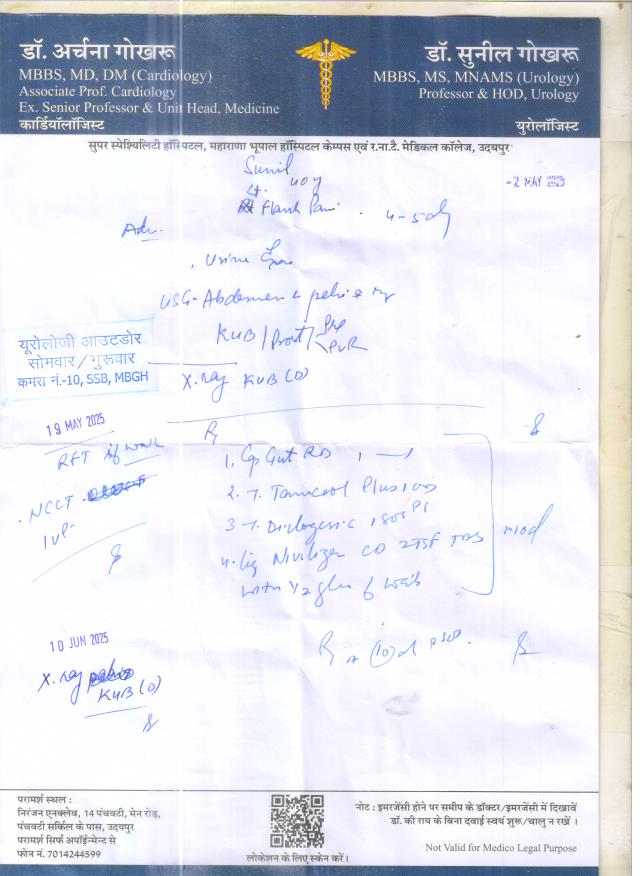 डॉ. अर्चना गोखरू
MBBS, MD, DM (Cardiology)
Associate Prof. Cardiology
Ex. Senior Professor & Unit Head, Medicine
कार्डियॉलॉजिस्ट
डॉ. सुनील गोखरू
MBBS, MS, MNAMS (Urology)
Professor & HOD, Urology
युरोलॉजिस्ट
सुपर स्पेश्यिलिटी हॉस्पिटल, महाराणा भूपाल हॉस्पिटल केम्पस एवं र.ना.टै. मेडिकल कॉलेज, उदयपुर
Sunil
40y
-2 MAY 2025
Lt. Flank Pain. 4-5d
Adv.
Urine
USG- Abdomen & pelvis
KUB/Prost/
PVR
X.ray KUB (D)
यूरोलोजी आउटडोर
सोमवार / गुरूवार
कमरा नं.-10, SSB, MBGH
19 MAY 2025
RFT if WNL
NCCT
IVP
Rx
1. Cap Gut
2. T. Plus
3 T.
4. Liq CD TDS
with 1/2 glass of
x10d
10 JUN 2025
X. ray
KUB (D)
परामर्श स्थल :
निरंजन एनक्लेव, 14 पंचवटी, मेन रोड़,
पंचवटी सर्किल के पास, उदयपुर
परामर्श सिर्फ अपॉईन्मेन्ट से
फोन नं. 7014244599
लोकेशन के लिए स्केन करें।
नोट : इमरजेंसी होने पर समीप के डॉक्टर/इमरजेंसी में दिखावें
डॉ. की राय के बिना दवाई स्वयं शुरू/चालु न रखें ।
Not Valid for Medico Legal Purpose